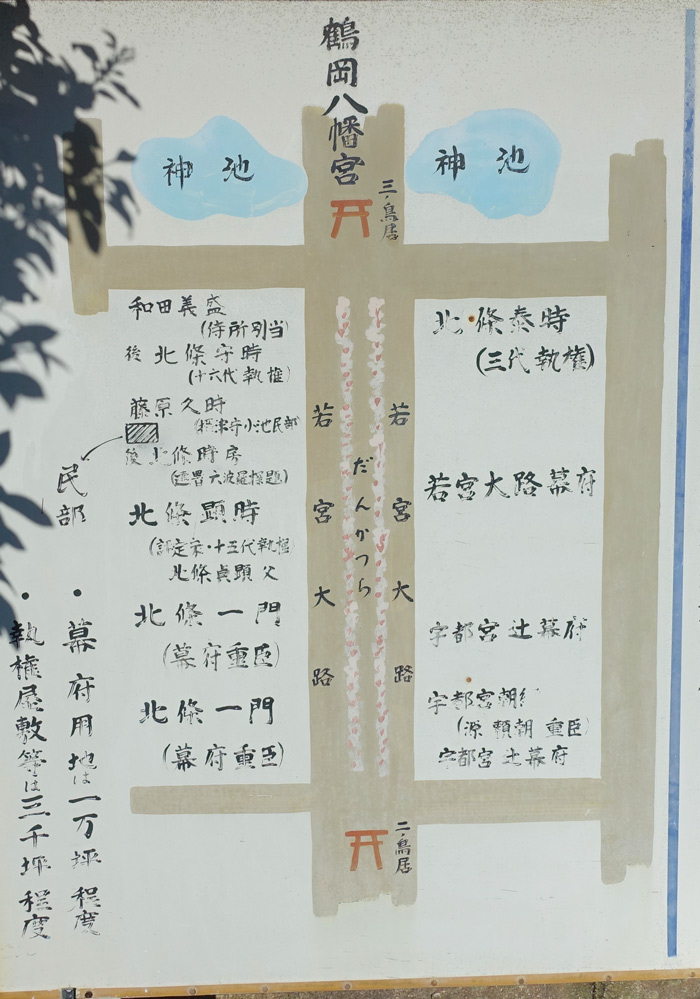 鶴岡八幡宮
神池
神池
三ノ鳥居
和田義盛
(侍所別当)
後 北條守時
(十六代執権)
藤原久時
(摂津守小池民部
後 北條時房
(連署六波羅探題)
民部
北條顕時
(評定衆・十五代執権
北條貞顕父
北條一門
(幕府重臣)
北條一門
(幕府重臣)
若宮大路
だんかつら
若宮大路
北條泰時
(三代執権)
若宮大路幕府
宇都宮辻幕府
宇都宮朝
(源頼朝重臣)
宇都宮辻幕府
二ノ鳥居
・幕府用地は一万坪程度
・執権屋敷等は三千坪程度